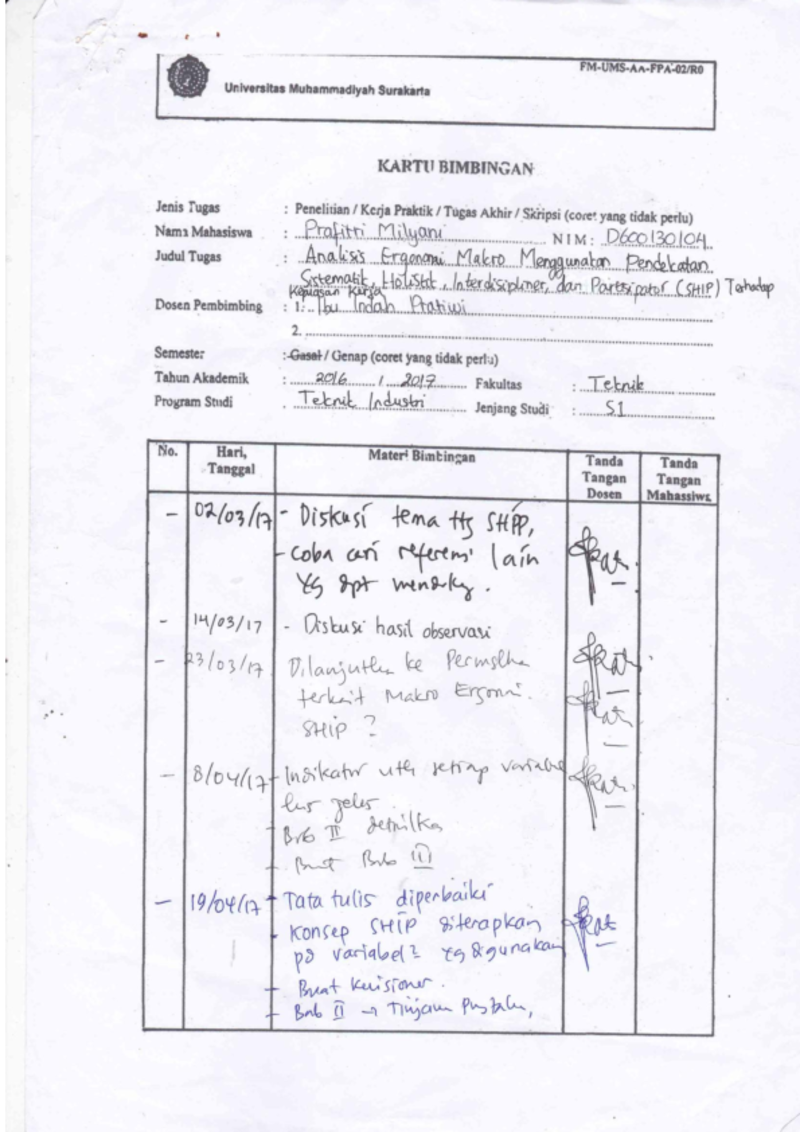 FM-UMS-AA-FPA-02/R0
Universitas Muhammadiyah Surakarta
KARTU BIMBINGAN
Jenis Tugas : Penelitian / Kerja Praktik / Tugas Akhir / Skripsi (coret yang tidak perlu)
Nama Mahasiswa : Prafitri Milyani NIM : D600130104
Judul Tugas : Analisis Ergonomi Makro Menggunakan Pendekatan
Sistematik, Holistik, Interdisipliner, dan Partisipator (SHIP) Terhadap
Kepuasan Kerja
Dosen Pembimbing : 1. Ibu Indah Pratiwi
2.
Semester : Gasal / Genap (coret yang tidak perlu)
Tahun Akademik : 2016 / 2017 Fakultas : Teknik
Program Studi : Teknik Industri Jenjang Studi : S1
No. Hari, Tanggal Materi Bimbingan Tanda Tangan Dosen Tanda Tangan Mahasiswa
- 02/03/17 - Diskusi tema ttg SHIP,
- Coba cari referensi lain
yg dpt
- 14/03/17 - Diskusi hasil observasi
- 23/03/17 ke
terkait Makro Ergonomi
SHIP ?
- 8/04/17 - Indikator utk setiap variabel
hrs jelas
- Bab II detailkan
- Buat Bab III
- 19/04/17 - Tata tulis diperbaiki
- Konsep SHIP diterapkan
pd variabel2 yg digunakan
- Buat Kuisioner.
- Bab II → Tinjauan Pustaka,